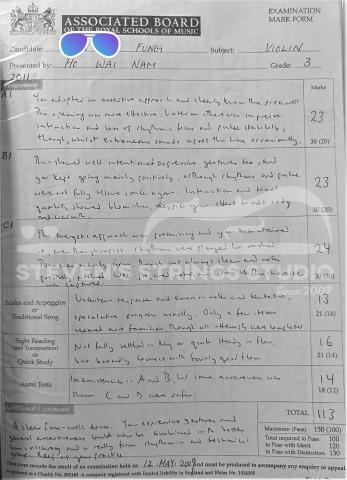 EXAMINATION
MARK FORM
ASSOCIATED BOARD
OF THE ROYAL SCHOOLS OF MUSIC
Candidate: FUNG Subject: VIOLIN
Presented by: HO WAI NAM Grade: 3
2011
Programme Marks
A1 You adopted an assertive approach and clearly knew the piece well.
The opening was more effective. Later on there was imprecise
intonation and loss of rhythmic focus and pulse stability,
though, whilst extraneous sounds upset the line occasionally.
23
30 (20)
B1 This showed well intentioned expressive gestures too, and
you kept going mainly positively, although rhythms and pulse
were not fully secure, once again. Intonation and tonal
quality showed blemishes, despite your effort to
23
30 (20)
C1 This energetic approach was promising and you maintained
it, even though some rhythms were played
though not always clean and
24
30 (20)
captured.
Scales and Arpeggios
or
Traditional Song
Uncertain response and errors in notes and tentative,
speculative progress mostly. Only a few items
seemed more familiar, though all attempts were completed.
13
21 (14)
Sight Reading
(and Transposition)
or
Quick Study
Not fully settled in key or quite steady in flow,
but broadly correct with fairly good flow.
16
21 (14)
Aural Tests
Inconsistencies in A and B, but some awareness was
shown. C and D were safer.
14
18 (12)
Additional Comments
TOTAL 113
A clear, fun well done. Your expressive gestures and
general assertiveness could now be combined with better
accuracy and a really firm rhythmic and technical
Keep up your practice
Maximum (Pass) 150 (100)
Total required to Pass 100
to Pass with Merit 120
to Pass with Distinction 130
This form records the result of an examination held on 12 MAY 2009 and must be produced to accompany any enquiry or appeal.
Registered as a Charity No. 292182 A company with limited liability in England and Wales No. 1926395
STEVEN'S STRINGS
Since 2003